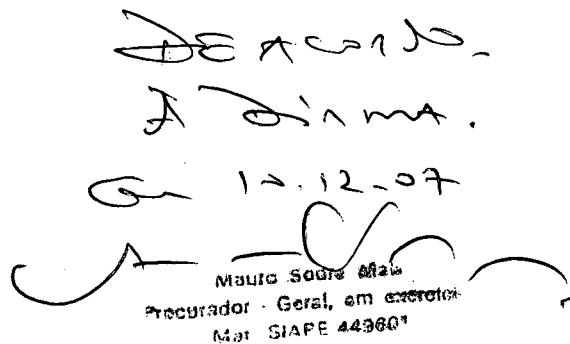 DE ACORDO.
À DIRMA.
Em 10.12.07
Mauro Sodre Maia
Procurador - Geral, em exercício
Mat SIAPE 449601